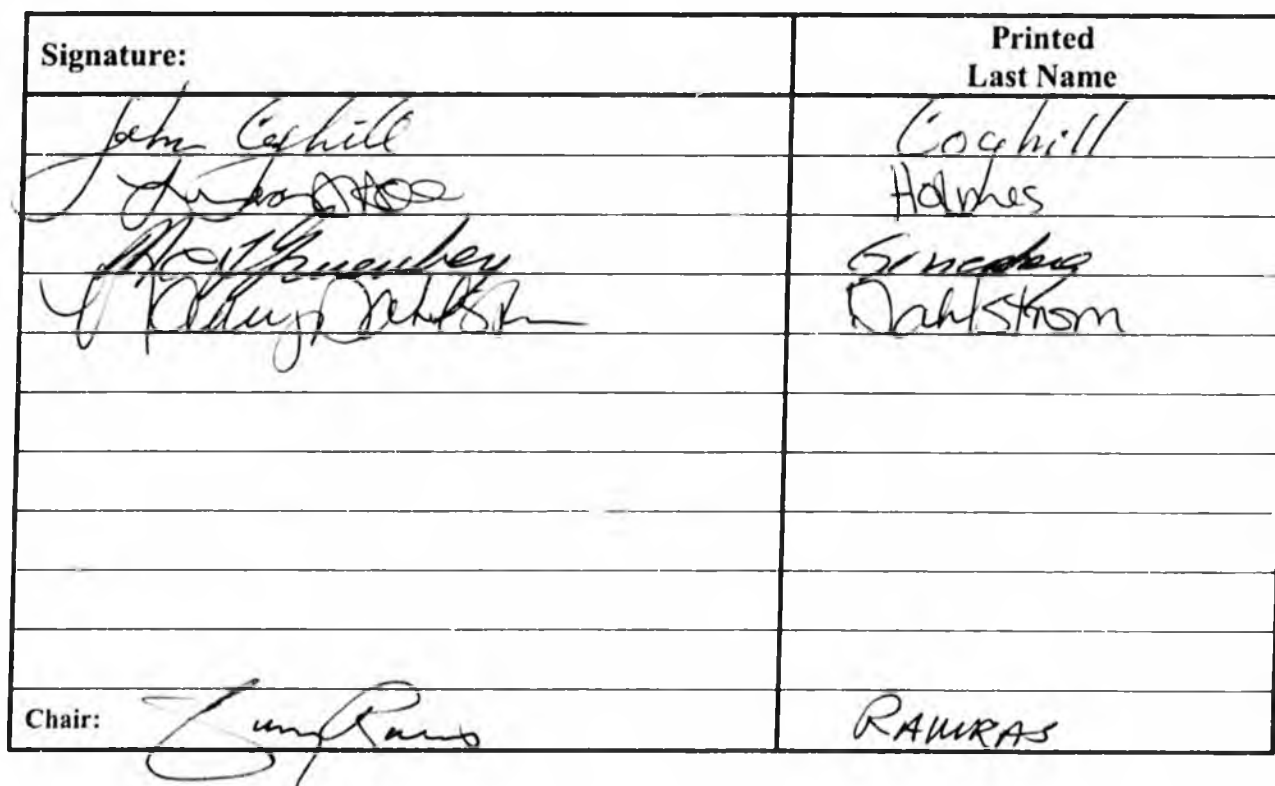 Signature: Printed
Last Name
John Coghill Coghill
Holmes
Gruenberg
Dahlstrom Dahlstrom
Chair: RAMRAS